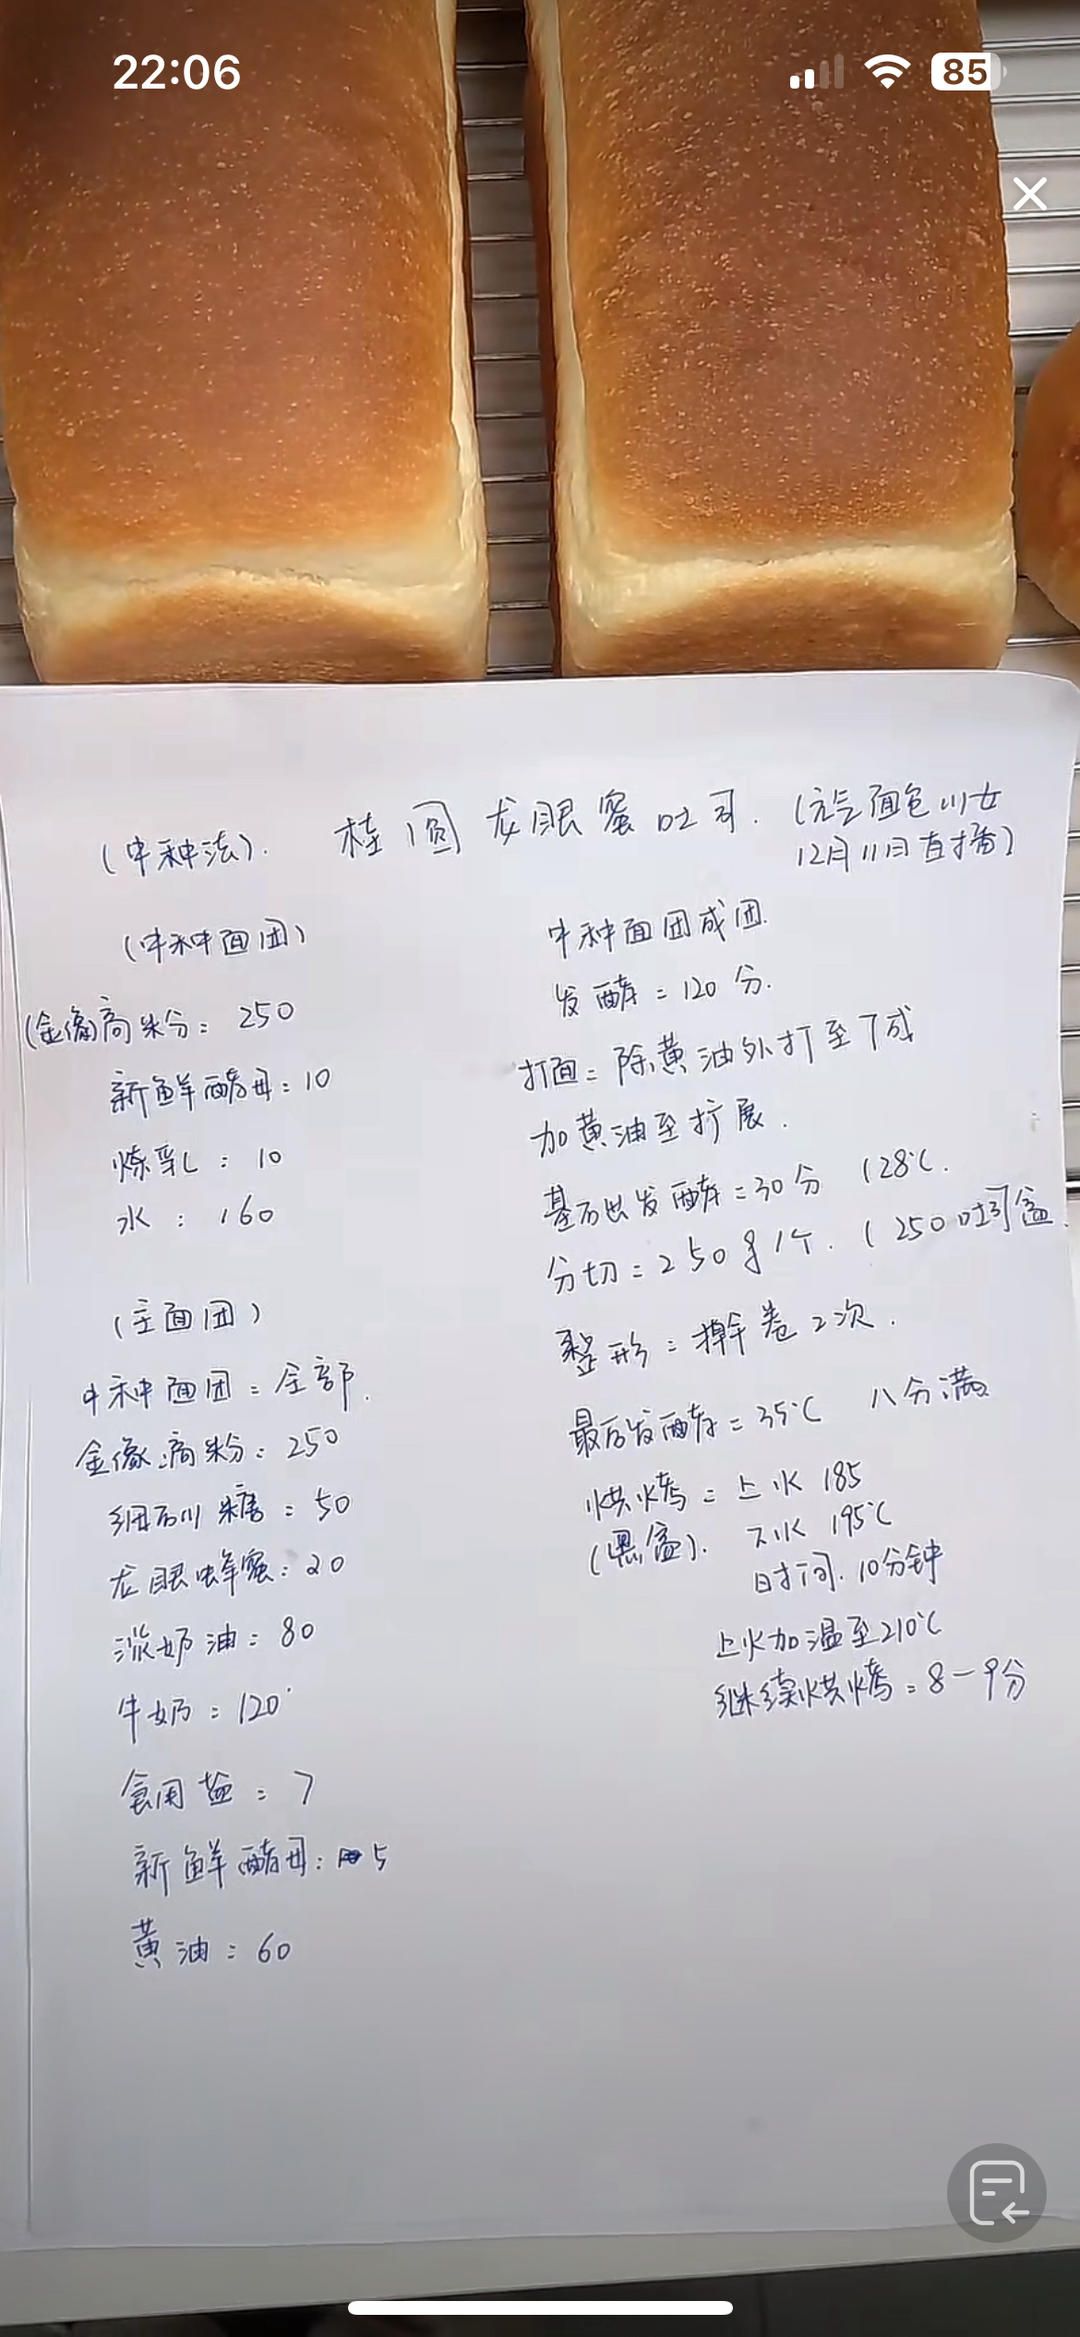 22:06
85
(中种法). 桂圆龙眼蜜吐司. (元气面包少女
12月11日直播)
(中种面团)
(金像)高粉: 250
新鲜酵母: 10
炼乳: 10
水: 160
(主面团)
中种面团: 全部.
金像高粉: 250
细砂糖: 50
龙眼蜂蜜: 20
淡奶油: 80
牛奶: 120
食用盐: 7
新鲜酵母: 5
黄油: 60
中种面团成团.
发酵: 120分.
打面: 除黄油外打至7成
加黄油至扩展.
基础发酵: 30分 (28℃.
分切: 250g 1个. (250吐司盒.
整形: 擀卷2次.
最后发酵: 35℃ 八分满
烘烤: 上火 185
(黑盒). 下火 195℃
时间. 10分钟
上火加温至210℃
继续烘烤: 8-9分